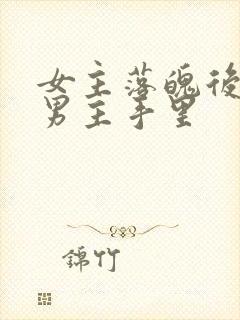 女主落魄後
男主手里
錦竹